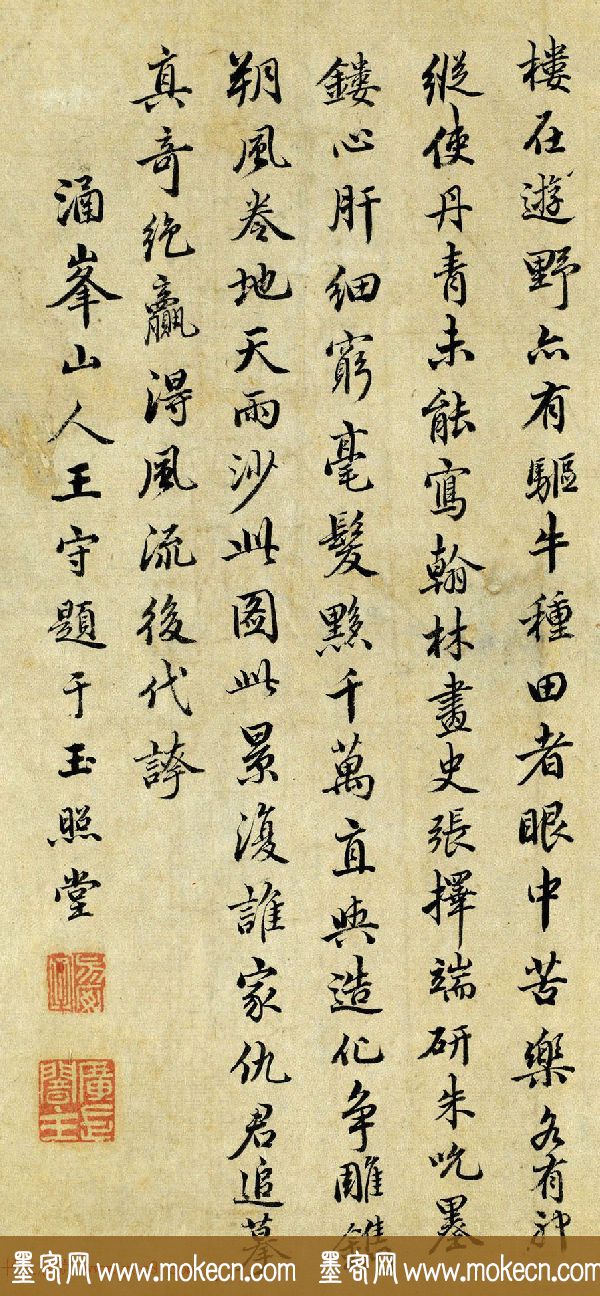 樓在遊野亦有驅牛種田者眼中苦樂各有神
縱使丹青未能寫翰林畫史張擇端研朱吮墨
鏤心肝細窮毫髮夥千萬直與造化爭雕鎪
朔風卷地天雨沙此圖此景復誰家仇君追摹
真奇絕贏得風流後代誇
涵峯山人王守題于玉照堂
墨客网 www.mokecn.com 墨客网 www.mokecn.com